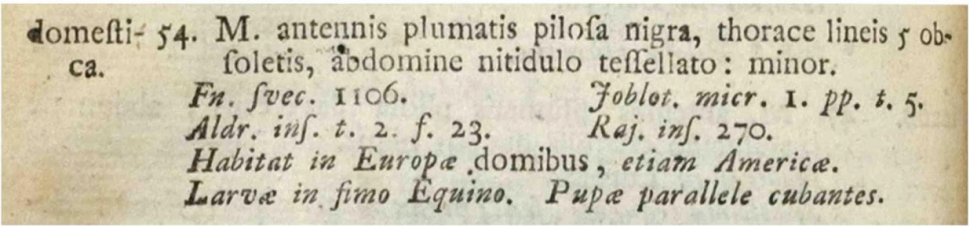 domeſti- 54. M. antennis plumatis piloſa nigra, thorace lineis 5 ob-
ca. ſoletis, abdomine nitidulo teſſellato: minor.
Fn. ſvec. 1106. Joblot. micr. 1. pp. t. 5.
Aldr. inſ. t. 2. f. 23. Raj. inſ. 270.
Habitat in Europæ domibus, etiam Americæ.
Larvæ in fimo Equino. Pupæ parallele cubantes.